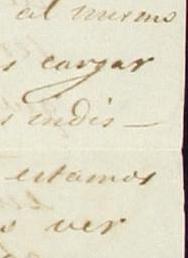 al mismo
s cargar
s indis-
estamos
o ver